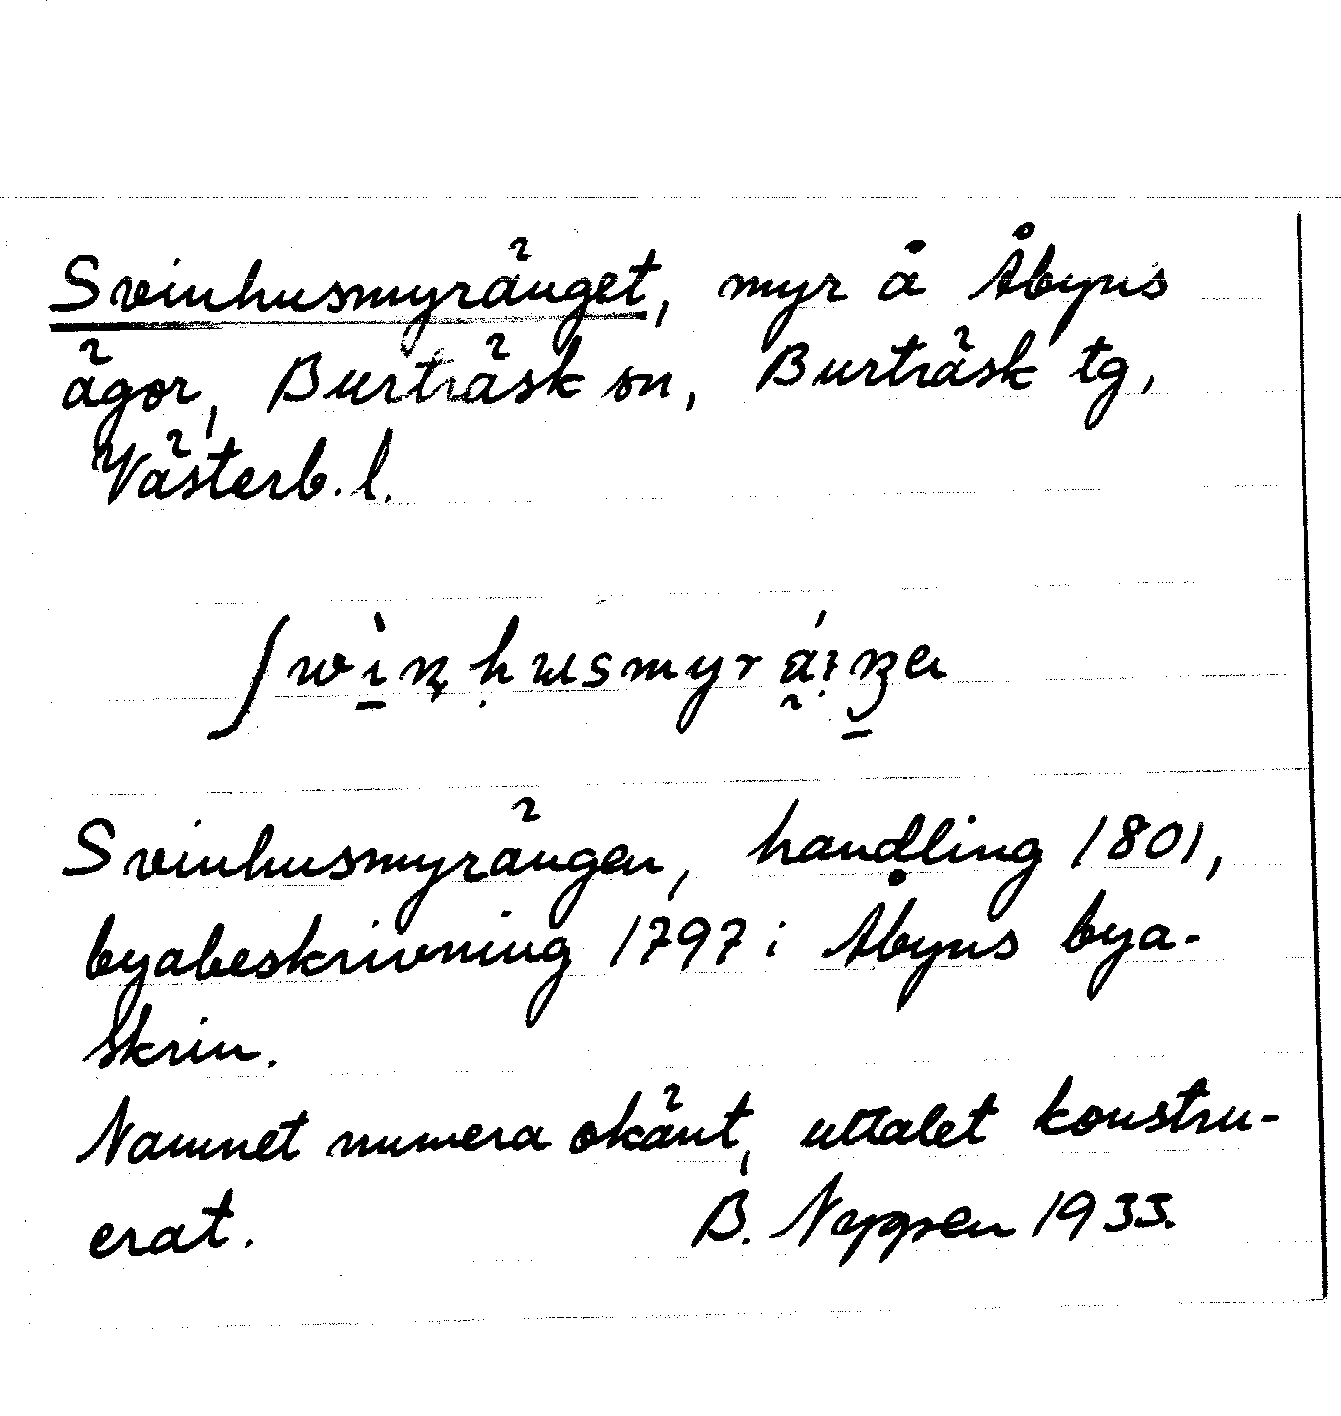 Svinhusmyränget, myr å Åbyns
ägor, Burträsk sn, Burträsk tg,
Västerb. l.
Svinhusmyrängen, handling 1801,
byabeskrivning 1797 i Åbyns bya-
skrin.
Namnet numera okänt, uttalet konstru-
erat. B. Neppsen 1933.